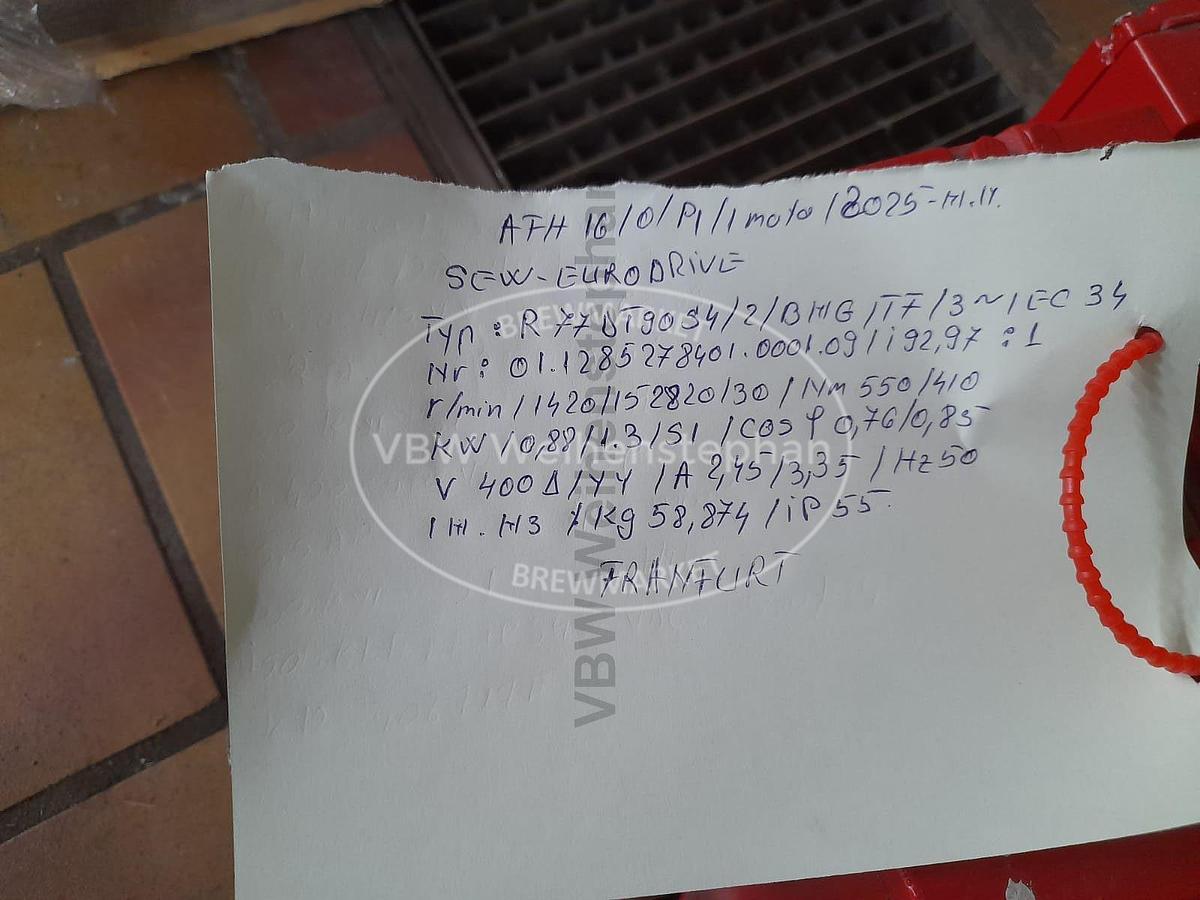 ATH 16/0/P1/1 moto/2025-M.M.
SEW-EURODRIVE
Typ: R 77 DT90S4/2/BMG/TF/3~IEC 34
Nr: 01.1285278401.0001.09/i 92,97 :1
r/min/1420/15 2820/30/Nm 550/410
KW/0,88/1.3/S1/cos φ 0,76/0,85
V 400Δ/YY/A 2,45/3,35/Hz 50
IM. H3/Kg 58,874/iP 55.
FRANFURT
BREWMARKET
VBW Weihenstephan
BREWMARKET
VBW Weihenstephan